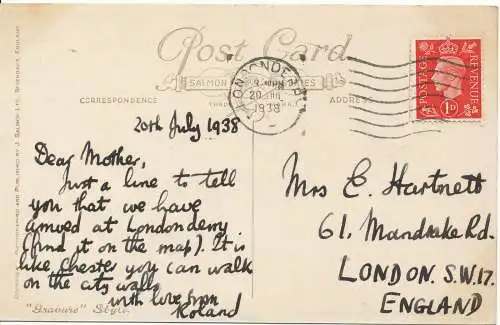 Post Card
SALMON SERIES
CORRESPONDENCE
ADDRESS
LONDONDERRY
20 JUL
1938
POSTAGE
REVENUE
1D
20th July 1938
Dear Mother,
Just a line to tell
you that we have
arrived at Londonderry
(find it on the map). It is
like Chester you can walk
on the city walls
with love from
Roland
Mrs E. Hartnett
61, Mandrake Rd.
LONDON. S.W.17.
ENGLAND
"Gravure" Style